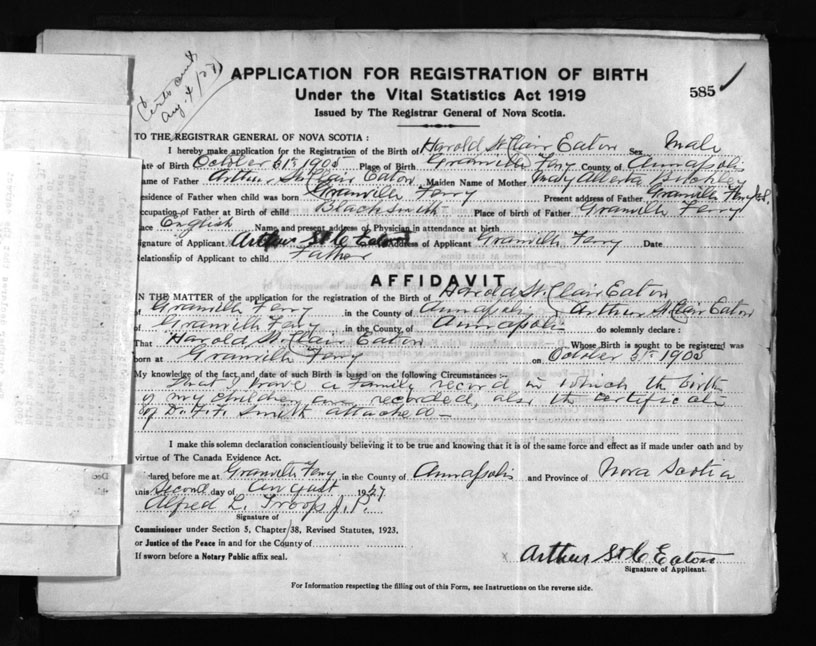 Aug. 4/27
APPLICATION FOR REGISTRATION OF BIRTH
Under the Vital Statistics Act 1919
585
Issued by The Registrar General of Nova Scotia.
TO THE REGISTRAR GENERAL OF NOVA SCOTIA :
I hereby make application for the Registration of the Birth of Harold St Clair Eaton Sex Male
ate of Birth October 5th 1905 Place of Birth Granville Ferry County of Annapolis
ame of Father Arthur St. Clair Eaton Maiden Name of Mother Mary Alberta
esidence of Father when child was born Granville Ferry Present address of Father Granville Ferry N.S.
ccupation of Father at Birth of child Blacksmith Place of birth of Father Granville Ferry
ace English Name and present address of Physician in attendance at birth
ignature of Applicant Arthur St C Eaton Address of Applicant Granville Ferry Date
elationship of Applicant to child Father
AFFIDAVIT
IN THE MATTER of the application for the registration of the Birth of Harold St. Clair Eaton
of Granville Ferry in the County of Annapolis I Arthur St Clair Eaton
of Granville Ferry in the County of Annapolis do solemnly declare :
That Harold St. Clair Eaton Whose Birth is sought to be registered was
born at Granville Ferry on October 5th 1905
My knowledge of the fact and date of such Birth is based on the following Circumstances :-
That I have a family record in which the birth
of my children are recorded, also the certificate
of Dr. F. F. Smith attached -
I make this solemn declaration conscientiously believing it to be true and knowing that it is of the same force and effect as if made under oath and by
virtue of The Canada Evidence Act.
lared before me at Granville Ferry in the County of Annapolis and Province of Nova Scotia
this Second day of August 1927
Alfred L. Troop J.P.
Signature of
Commissioner under Section 5, Chapter 38, Revised Statutes, 1923.
or Justice of the Peace in and for the County of
If sworn before a Notary Public affix seal.
x Arthur St C Eaton
Signature of Applicant.
For Information respecting the filling out of this Form, see Instructions on the reverse side.